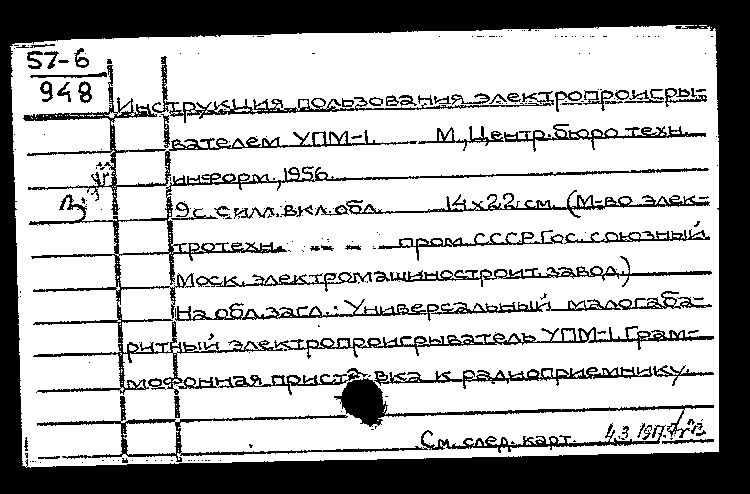 57-6
948
Инструкция пользования электропроигры-
вателем УПМ-1. М., Центр. бюро техн.
информ., 1956.
9 с. с илл. вкл. обл. 14х22 см. (М-во элек-
тротехн. пром. СССР. Гос. союзный
Моск. электромашиностроит. завод.)
На обл. загл.: Универсальный малогаба-
ритный электропроигрыватель УПМ-1. Грам-
мофонная приставка к радиоприемнику.
См. след. карт. 4.3.